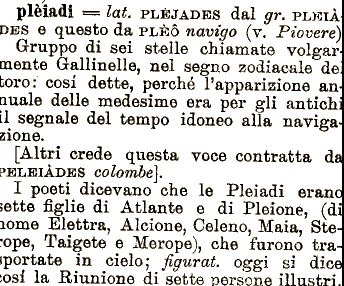 plèiadi = lat. PLÈJADES dal gr. PLEIÀ-
DES e questo da PLÈÔ navigo (v. Piovere)
Gruppo di sei stelle chiamate volgar-
mente Gallinelle, nel segno zodiacale del
toro: cosí dette, perché l'apparizione an-
nuale delle medesime era per gli antichi
il segnale del tempo idoneo alla naviga-
zione.
[Altri crede questa voce contratta da
PELEIÀDES colombe].
I poeti dicevano che le Pleiadi erano
sette figlie di Atlante e di Pleione, (di
nome Elettra, Alcione, Celeno, Maia, Ste-
rope, Taigete e Merope), che furono tra-
sportate in cielo; figurat. oggi si dice
cosí la Riunione di sette persone illustri.